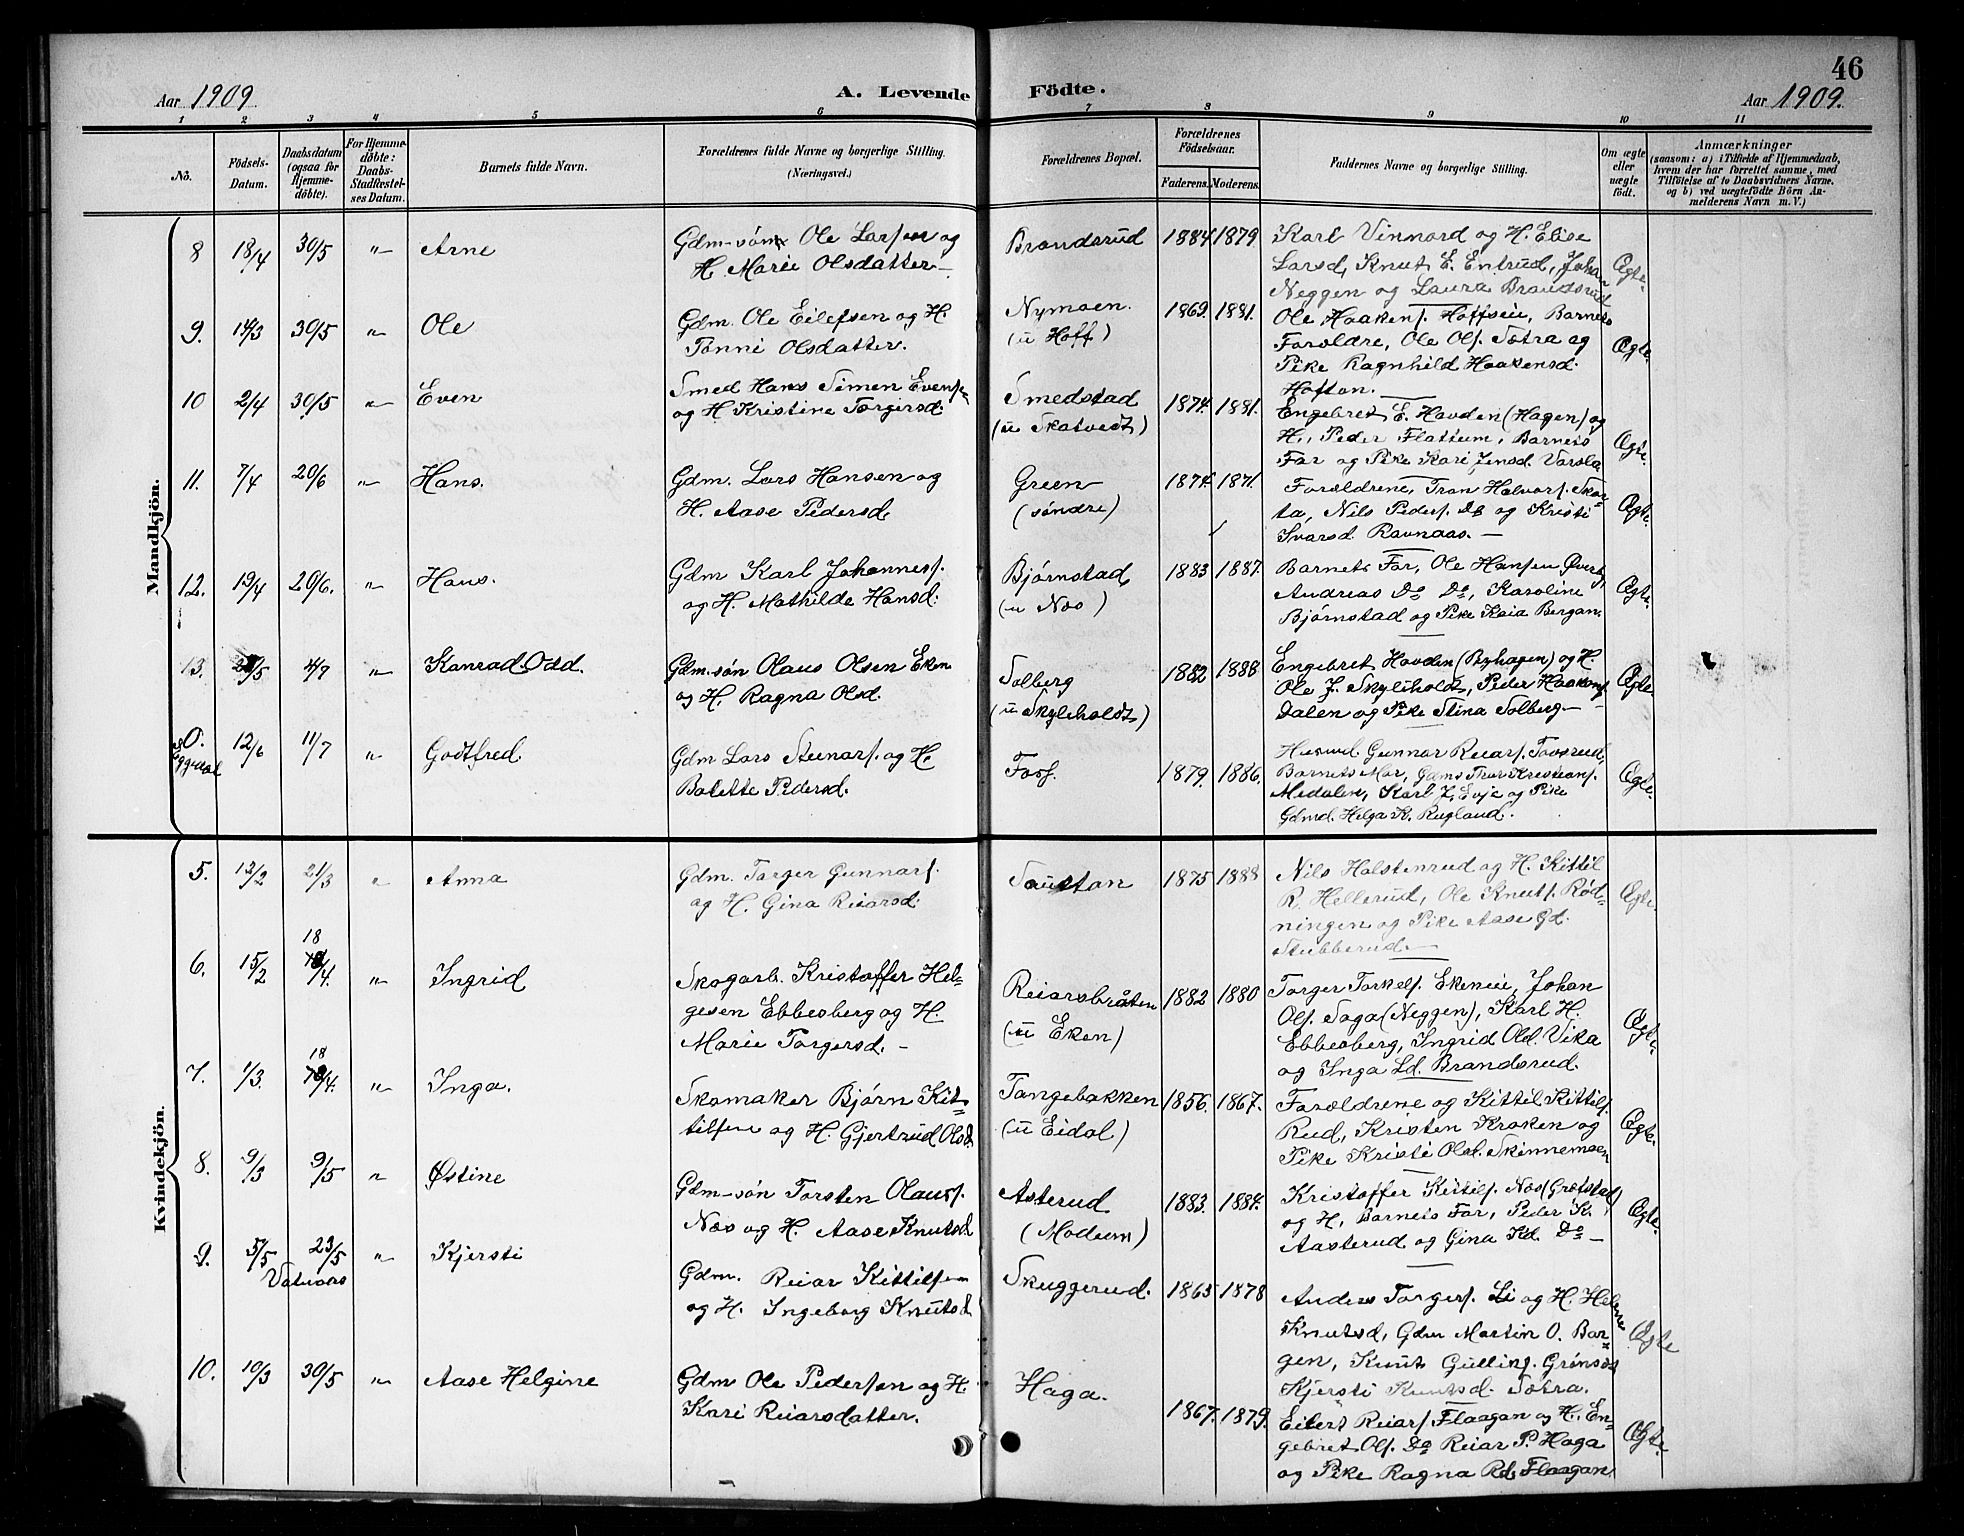 46
Aar 1909.
A. Levende Födte.
Aar 1909.
1 2 3 4 5 6 7 8 9 10 11
No.
Födsels-
Datum.
Daabsdatum
(ogsaa for
Hjemme-
döbte).
For Hjemme-
döbte:
Daabs-
Stadfæstel-
ses Datum.
Barnets fulde Navn.
Forældrenes fulde Navne og borgerlige Stilling.
(Næringsvei.)
Forældrenes Bopæl.
Forældrenes
Födselsaar.
Faderens. Moderens.
Faddernes Navne og borgerlige Stilling.
Om ægte
eller
uægte
födt.
Anmærkninger
(saasom: a) i Tilfælde af Hjemmedaab,
hvem der har forrettet samme, med
Tilföielse af to Daabsvidners Navne.
og b) ved uægtefödte Börn An-
melderens Navn m. V.)
Mandkjön.
8 18/4 30/5 " Arne
Gdm-søn Ole Larsen og
H. Marie Olsdatter —
Brandsrud 1884 1879
Karl Vinnord og H. Elise
Larsd, Knut E. Entrud, Johan
Neggen og Laura Brandsrud
Ægte.
9. 14/3 30/5 " Ole
Gdm. Ole Eilefsen og H
Tonni Olsdatter.
Nymoen.
(u Hoff)
1862. 1881.
Ole Haakens. Hoffseie, Barnets
Forældre, Ole Ols. Sætra og
Pike Ragnhild Haakensd.
Hoftan.
Ægte.
10 2/4 30/5 " Even
Smed Hans Simen Evense
og H Kristine Torgersd.
Smedstad
(u Skatvedt)
1874. 1881.
Engebret E. Hovden (Hagen) og
H., Peder Flattum, Barnets
Far og Pike Kari Jensd. Varsla
Ægte
11. 7/4 20/6 " Hans.
Gdm. Lars Hansen og
H. Aase Pedersd.
Green
(søndre)
1874. 1871.
Forældrene, Tron Halvors. Skar-
ta, Nils Peders. Do og Kristi
Ivarsd. Ravnaas. —
Ægte.
12. 19/4 20/6. " Hans.
Gdm Karl Johanness.
og H. Mathilde Hansd.
Bjørnstad
(u Næs)
1883 1887.
Barnets Far, Ole Hansen Øverby,
Andreas Do Do, Karoline
Bjørnstad og Pike Kaia Bergan.
Ægte.
13. /5 4/7 " Konrad Odd.
Gdm-søn Olaus Olsen Eken
og H. Ragna Olsd.
Solberg
(u Skyliholdt)
1882 1888
Engebret Hovden (Byhagen) og H.
Ole J. Skyliholdt, Peder Haakons.
Dalen og Pike Stina Solberg —
Ægte.
O.
Eggedal
12/6 11/7 " Godtfred.
Gdm Lars Steinars. og H.
Bolette Pedersd.
Foss.
1879. 1886.
Husmd. Gunnar Reiars. Tovsrud,
Barnets Mor, Gdms Thor Kristians.
Medalen, Karl J. Evje og Pike
Gdmd. Helga K. Rugland.
Ægte.
Kvindekjön.
5. 13/2 21/3 " Anna
Gdm. Torger Gunnars.
og H. Gina Reiarsd.
Saustan 1875 1888
Nils Holstenrud og H. Kittil
R. Hellerud, Ole Knuts. Rød-
ningen og Pike Aase Gd.
Stubberud. —
Ægte.
6. 15/2 18/4. " Ingrid
Skogarb. Kristoffer Hel-
gesen Ebbesberg og H.
Marie Torgersd. —
Reiarsbråten
(u Eken)
1882 1880
Torger Torkels. Ekeneie, Johan
Ols. Saga (Neggen), Karl H.
Ebbesberg, Ingrid Old. Vika
og Inga Ld. Brandsrud.
Ægte
7. 1/3. 18/4. " Inga.
Skomaker Bjørn Kit-
tilsen og H. Gjertrud Olsd
Tangebakken
(u Eidal)
1856. 1867.
Forældrene og Kittil Kittils.
Rud, Kristen Kroken og
Pike Kristi Olsd. Skinnemoen
Ægte.
8. 9/3 9/5 " Østine
Gdm-søn Torsten Olauss.
Næs og H. Aase Knutsd
Asterud
(Modum)
1883. 1884.
Kristoffer Kittils. Næs (Grætstad)
og H., Barnets Far, Peder K.
Aasterud og Gina Kd. Do —
Ægte.
9. 5/5 23/5 " Kjersti
Vatnaas
Gdm. Reiar Kittilsen
og H. Ingeborg Knutsd
Skuggerud. 1865 1878
Anders Torgers. Li og H. Helene
Knutsd, Gdm Martin O. Bar-
gen, Knut Gullings. Grønset
Kjersti Knutsd. Sætra.
Ægte
10. 10/3 30/5 " Aase Helgine
Gdm Ole Pedersen og H.
Kari Reiarsdatter.
Haga.
1867. 1879.
Eilert Reiars. Flaagan og H. En-
gebret Ols. Do Reiar P. Haga
og Pike Ragna Rd. Flaagan
Ægte.